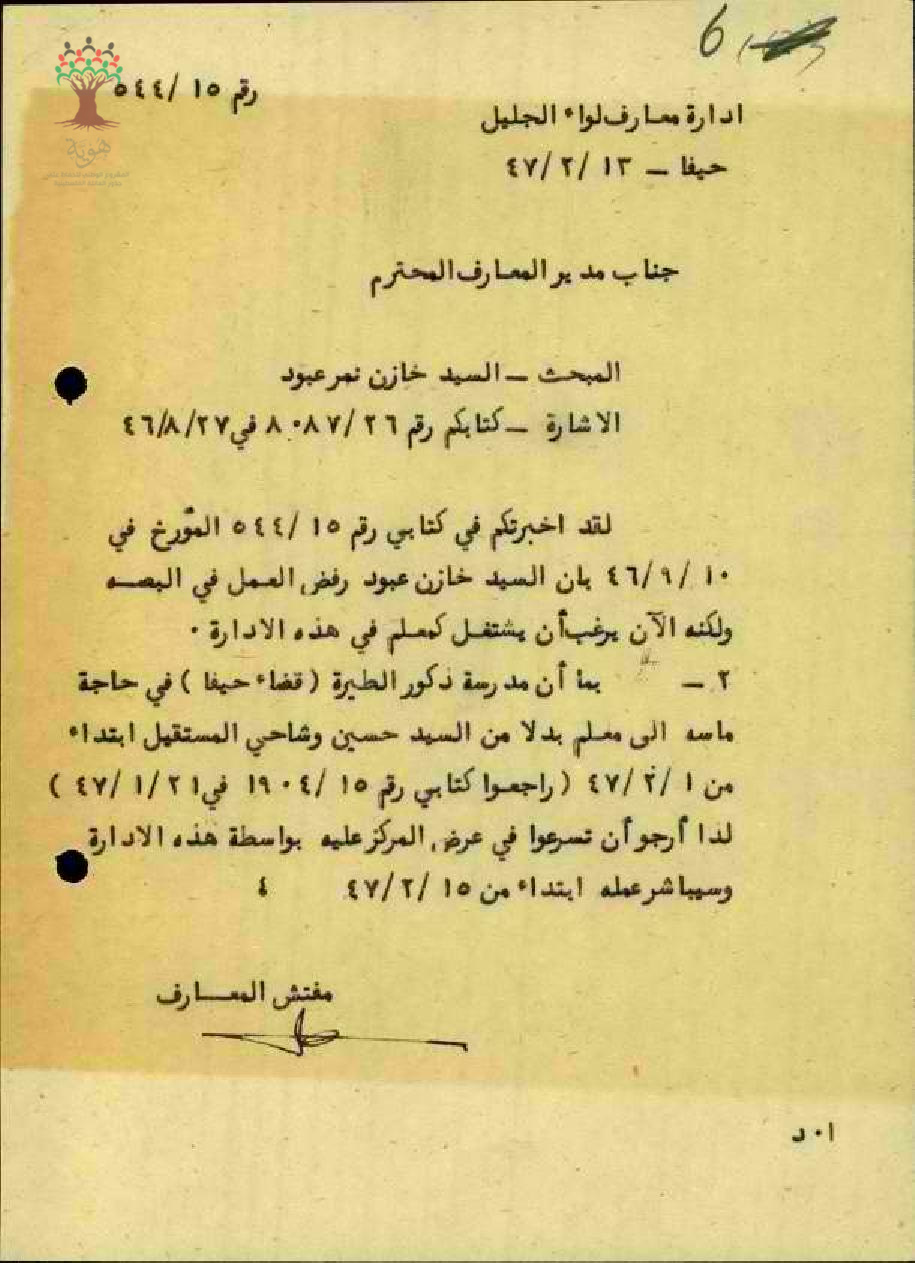 6
رقم ١٥/ ٥٤٤
ادارة معارف لواء الجليل
حيفا – ١٣ /٢ /٤٧
هوية
جناب مدير المعارف المحترم
المبحث – السيد خازن نمر عبود
الاشارة – كتابكم رقم ٢٦/ ٨٠٨٧ في ٤٦/٨/٢٧
لقد اخبرتكم في كتابي رقم ١٥/ ٥٤٤ المؤرخ في
١٠ /٩ /٤٦ بان السيد خازن عبود رفض العمل في البصه
ولكنه الآن يرغب أن يشتغل كمعلم في هذه الادارة ٠
٢ – بما أن مدرسة ذكور الطيرة ( قضاء حيفا ) في حاجة
ماسه الى معلم بدلا من السيد حسين وشاحي المستقيل ابتداء
من ١ /٢ /٤٧ ( راجعوا كتابي رقم ١٥/ ١٩٠٤ في ٢١ /١ /٤٧ )
لذا أرجو أن تسرعوا في عرض المركز عليه بواسطة هذه الادارة
وسيباشر عمله ابتداء من ١٥ /٢ /٤٧ ٤
مفتش المعـــارف
ا ٠ د